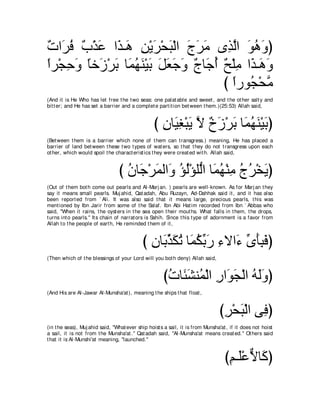 (وَهُوَ الَّذِى مَرَجَ الْبَحْرَيْنِ هَـذَا عَذْبٌ فُرَاتٌ
وَهَـذَا مِلْحٌ أُجَاجٌ وَجَعَلَ بَيْنَهُمَا بَرْزَخاً وَحِجْراً
مَّحْجُوراً )
(And it is He Who has let free the two seas: one palatable and sweet, and the other salty and
bitter; and He has set a barrier and a complete partition between them.)(25:53) Allah said,
(بَيْنَهُمَا بَرْزَخٌ لاَّ يَبْغِيَانِ )
(Between them is a barrier which none of them can transgress.) meaning, He has placed a
barrier of land between these two types of waters, so that they do not transgress upon each
other, which would spoil the characteristics they were created with. Allah said,
(يَخْرُجُ مِنْهُمَا الْلُّؤْلُؤُ وَالمَرْجَانُ )
(Out of them both come out pearls and Al-Marjan. ) pearls are well-known. As for Marjan they
say it means small pearls. Mujahid, Qatadah, Abu Ruzayn, Ad-Dahhak said it, and it has also
been reported from `Ali. It was also said that it means large, precious pearls, this was
mentioned by Ibn Jarir from some of the Salaf. Ibn Abi Hatim recorded from Ibn `Abbas who
said, "When it rains, the oysters in the sea open their mouths. What falls in them, the drops,
turns into pearls." Its chain of narrators is Sahih. Since this type of adornment is a favor from
Allah to the people of earth, He reminded them of it,
(فَبِأَىِّ ءَالاءِ رَبِّكُمَا تُكَذِّبَانِ )
(Then which of the blessings of your Lord will you both deny) Allah said,
(وَلَهُ الْجَوَارِ الْمُنشَئَاتُ)
(And His are Al-Jawar Al-Munsha'at), meaning the ships that float,
(فِى الْبَحْرِ)
(in the seas), Mujahid said, "Whatever ship hoists a sail, it is from Munsha'at, if it does not hoist
a sail, it is not from the Munsha'at." Qatadah said, "Al-Munsha'at means created." Others said
that it is Al-Munshi'at meaning, "launched."
(كَالاٌّعْلَـمِ)